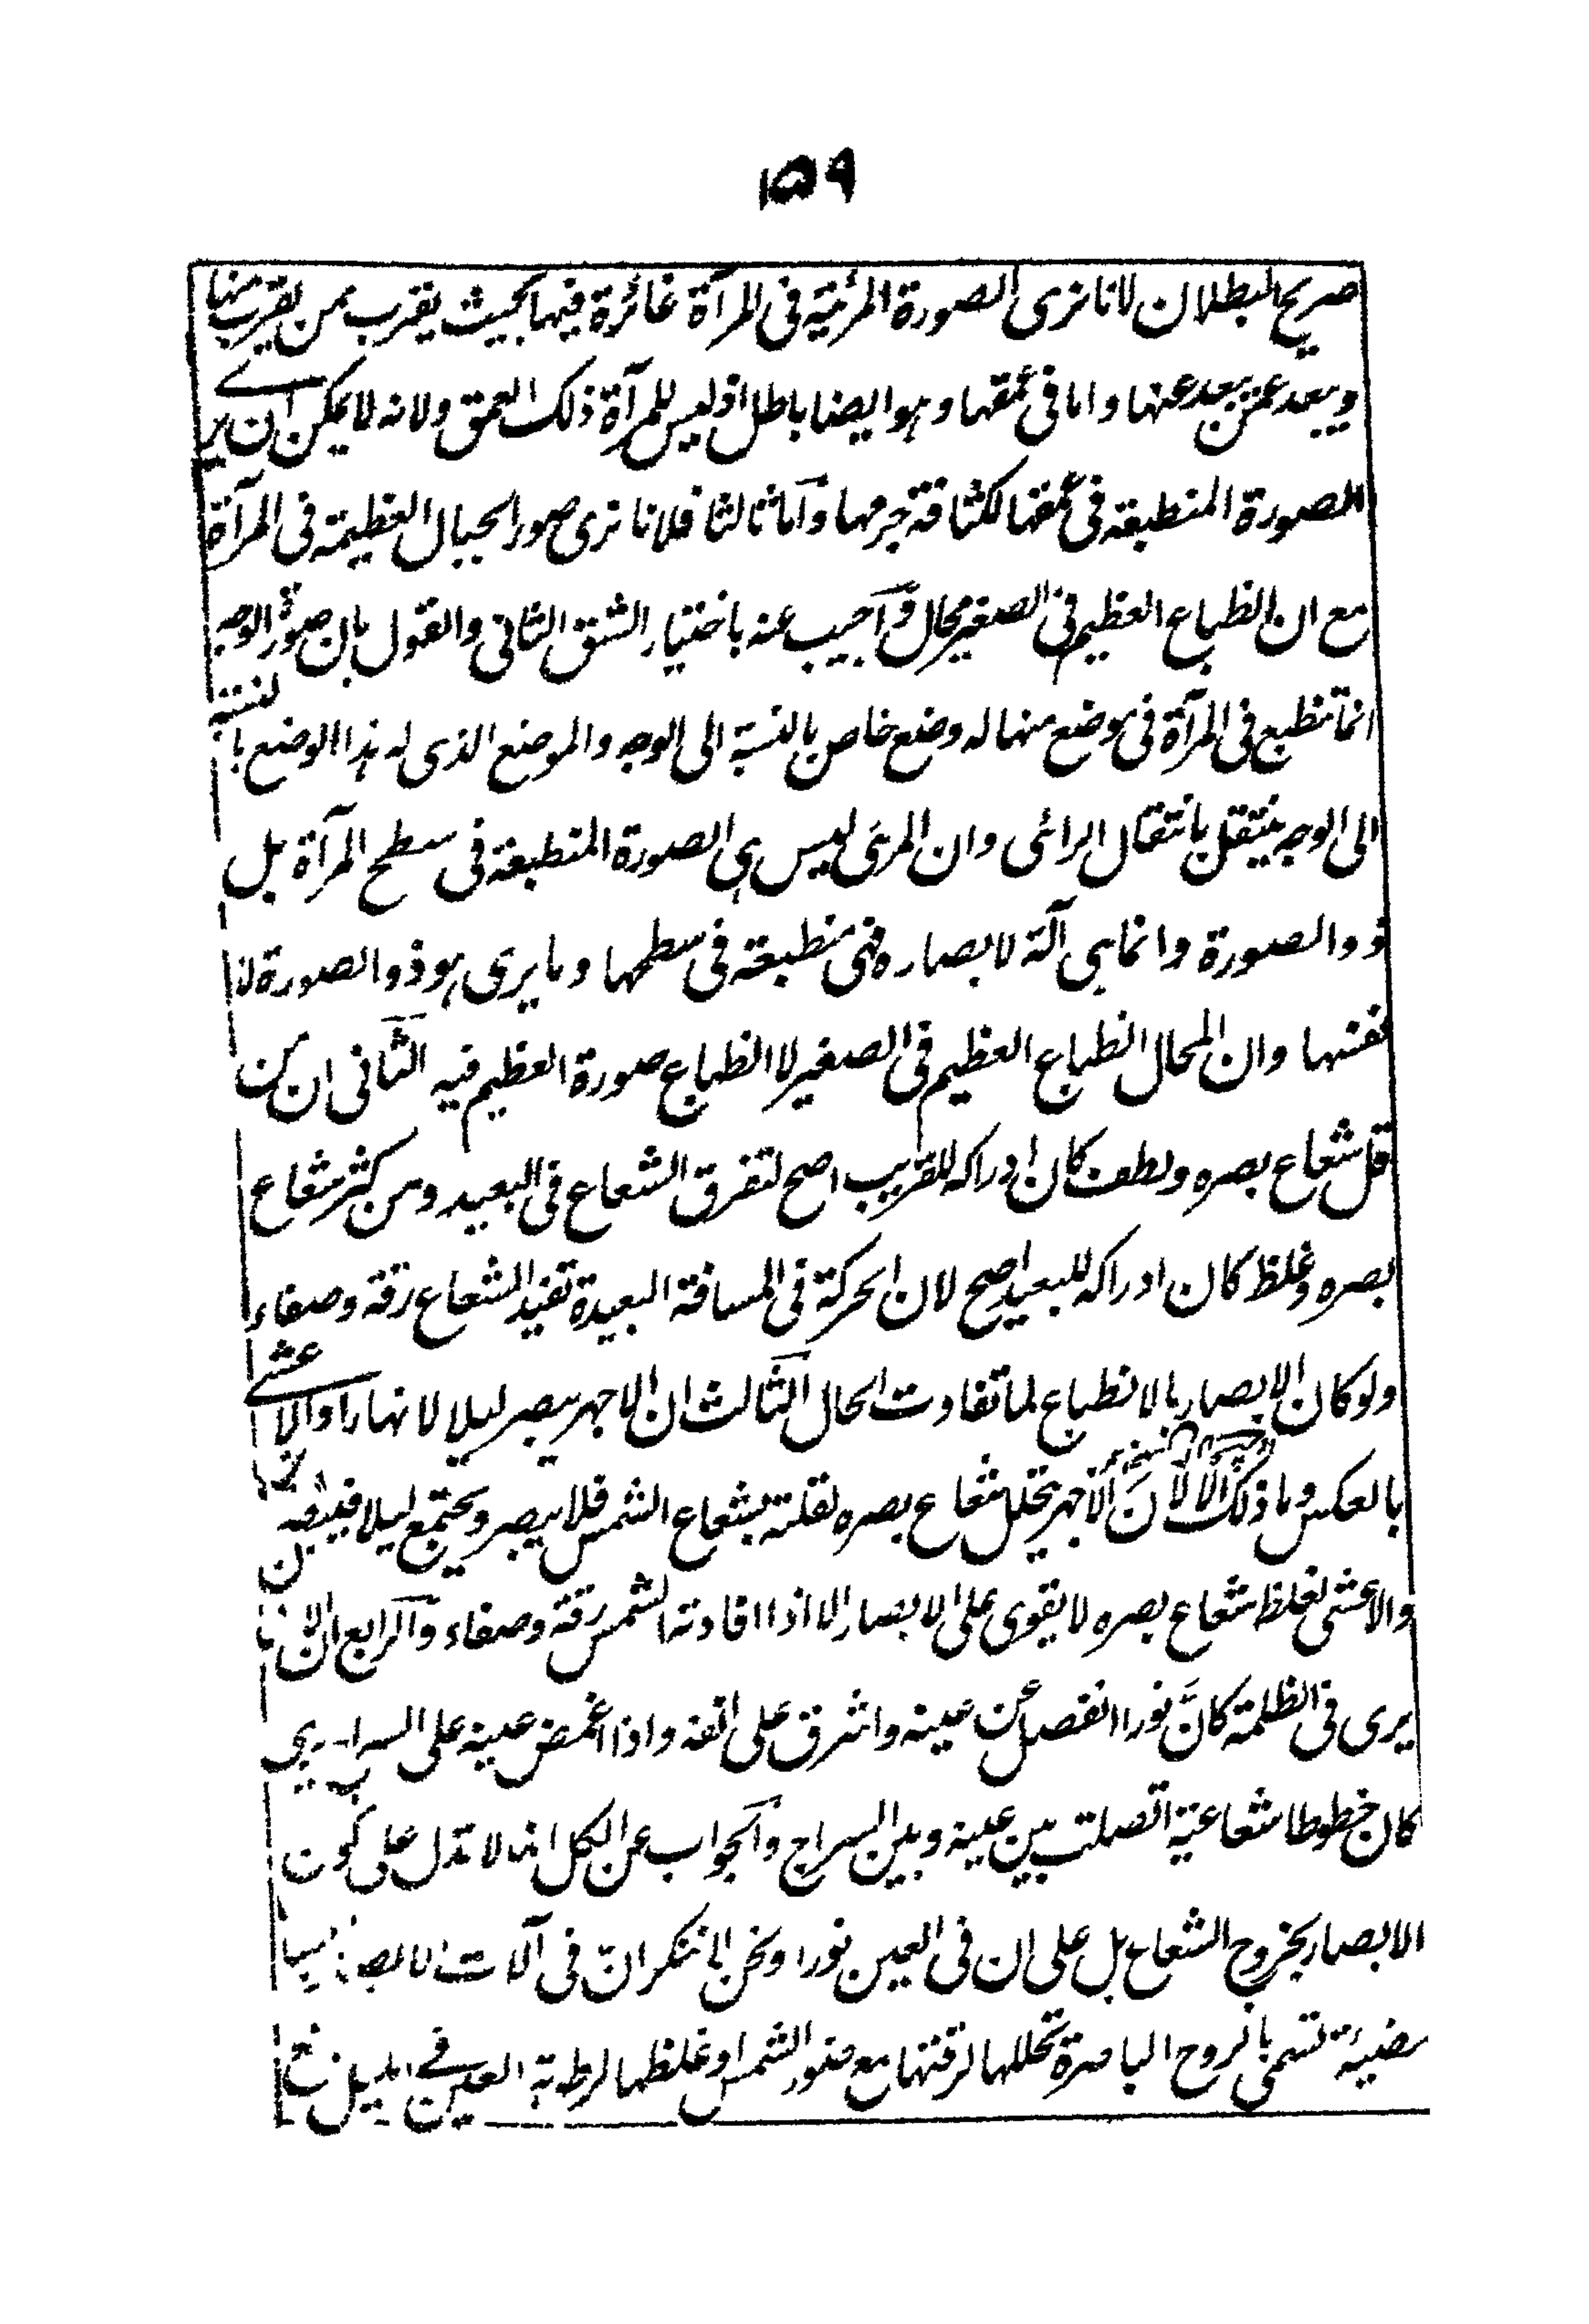 ١٥٩
صريح البطلان لانا نرى الصورة المرئية فى المرآة غائرة فيها بحيث يقرب ممن يقرب منها
ويبعد عمن يبعد عنها واما فى عمقها وهو ايضا باطل اذ ليس للمرآة ذلك العمق ولانه لا يمكن ان يرے
الصورة المنطبعة فى عمقها لكثافة جرمها وآما ثالثا فلانا نرى صور الجبال العظيمة فى المرآة
مع ان انطباع العظيم فى الصغير محال وآجيب عنه باختيار الشق الثانى والقول بان صورة الوجه
انما تنطبع فى المرآة فى موضع منها له وضع خاص بالنسبة الى الوجه والموضع الذى له هذا الوضع بالنسبة
الى الوجه ينتقل بانتقال الرائى وان المرئى ليس هى الصورة المنطبعة فى سطح المرآة بل
ذو الصورة وانما هى آلة لابصاره فهى منطبعة فى سطحها وما يرى هو ذو الصورة لا
نفسها وان المحال انطباع العظيم فى الصغير لا انطباع صورة العظيم فيه الثآنى ان من
قل شعاع بصره ولطف كان ادراكه للقريب اصح لتفرق الشعاع فى البعيد ومن كثر شعاع
بصره وغلظ كان ادراكه للبعيد اصح لان الحركة فى المسافة البعيدة تفيد الشعاع رقة وصفاء
ولو كان الابصار بالانطباع لما تفاوت الحال الثآلث ان الاجهر يبصر ليلا لا نهارا والاعشے
بالعكس وما ذلك الا لان الاجهر يتحلل شعاع بصره لقلته بشعاع الشمس فلا يبصر ويجتمع ليلا فيبصر
والاعشى لغلظ شعاع بصره لا يقوى على الابصار الا اذا افادته الشمس رقة وصفاء وآلرابع ان الانسان
يرى فى الظلمة كانَّ نورا انفصل عن عينه واشرق على انفه واذا اغمض عينيه على السراج يرى
كان خطوطا شعاعية اتصلت بين عينه وبين السراج وآلجواب عن الكل انه لا تدل على كون
الابصار بخروج الشعاع بل على ان فى العين نورا ونحن لا ننكر انّ فى آلات الابصار
مضيئة تسمى بالروح الباصرة تحللها لرقتها مع ضوء الشمس او غلظها لرطوبة العين فے الليل